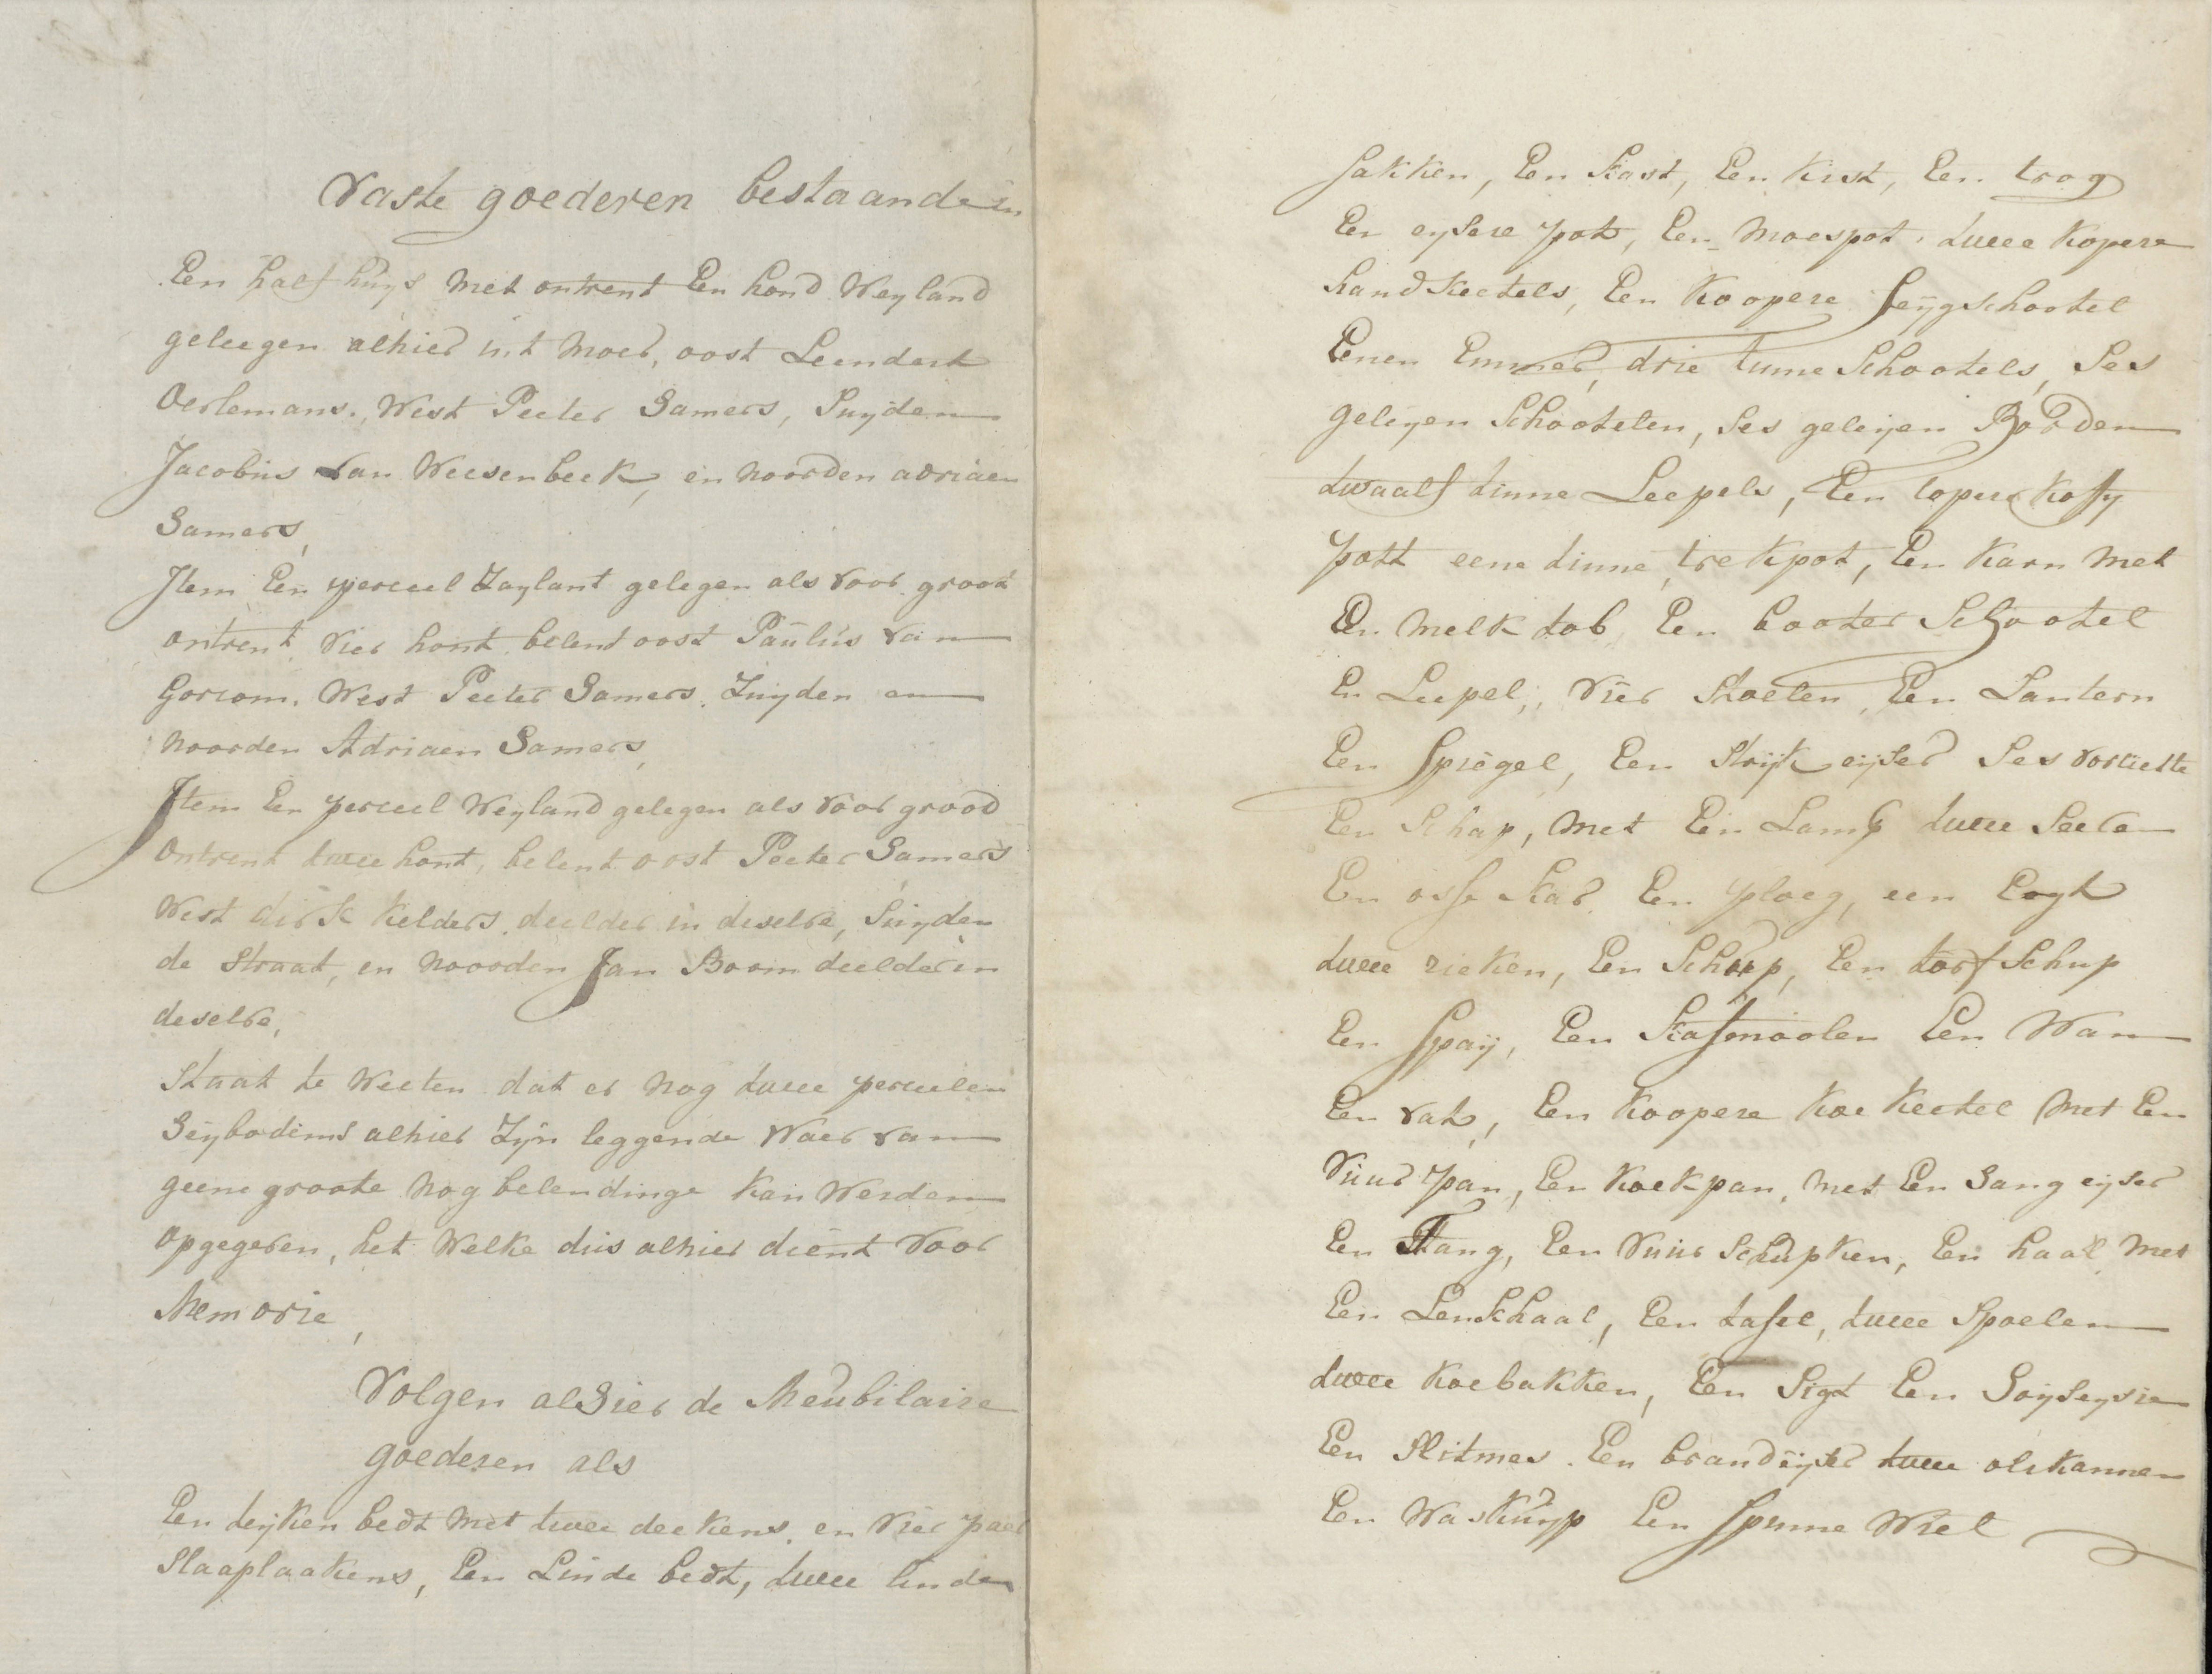 Vaste goederen bestaande in
Een half huijs met ontrent Een hond Weyland
geleegen alhier int moer, oost Leendert
Oerlemans, West Peeter Samers, Suyden
Jacobus van Weesenbeek, en noorden adriaen
Samers,
Item Een perceel Zaylant gelegen als voor groot
ontrent vier hont belent oost Paulus van
Gorcom, West Peeter Samers, Zuyden en
noorden Adriaen Samers,
Item Een perceel Weyland gelegen als voor grood
ontrent twee hont, belent oost Peeter Samers
West dirk kelders deelder in deselve, Suyden
de straat, en noorden Jan Boom deelder in
deselve,
Staat te Weeten dat er nog twee perceelen
alhier Zyn leggende Waer van
geene groote nog belendinge kan Werden
opgegeven, het Welke dus alhier dient voor
Memorie,
Volgen alhier de Meubilaire
goederen als
Een teyken bedt met twee deekens en vier paer
Slaaplaakens, Een Linde bedt, twee linde
Sakken, Een Kast, Een kist, Een trog
Een eysere pot, Een moespot, twee kopere
handkeetels, Een koopere Seygschootel
Eenen Emmer, drie tinne Schootels, Ses
geleyen Schootelen, Ses geleyen Borden
twaalf tinne Leepels, Een copere koffy
pott eene tinne trekpot, Een karn met
Een melk tob, Een booter Schootel
En Leepel, vier Stoelen, Een Lantern
Een Spiegel, Een Strijk eijser Ses vorcette
Een Schap, met Een Lamp twee
Een osse kar Een ploeg, een Eegt
twee rieken, Een Schup, Een torfschup
Een Spaij, Een Kafmoolen Een Wan
Een vat, Een koopere koe keetel met Een
vuur pan, Een koekpan, met Een hang eyser
Een Tang, Een Vuur Schupken, Een haal met
Een Lenkhaal, Een tafel, twee Spoelen
twee koebakken, Een Sigt Een
Een Slitmes. Een brandeijser twee oliekannen
Een Waskuyp Een Spinne Wiel